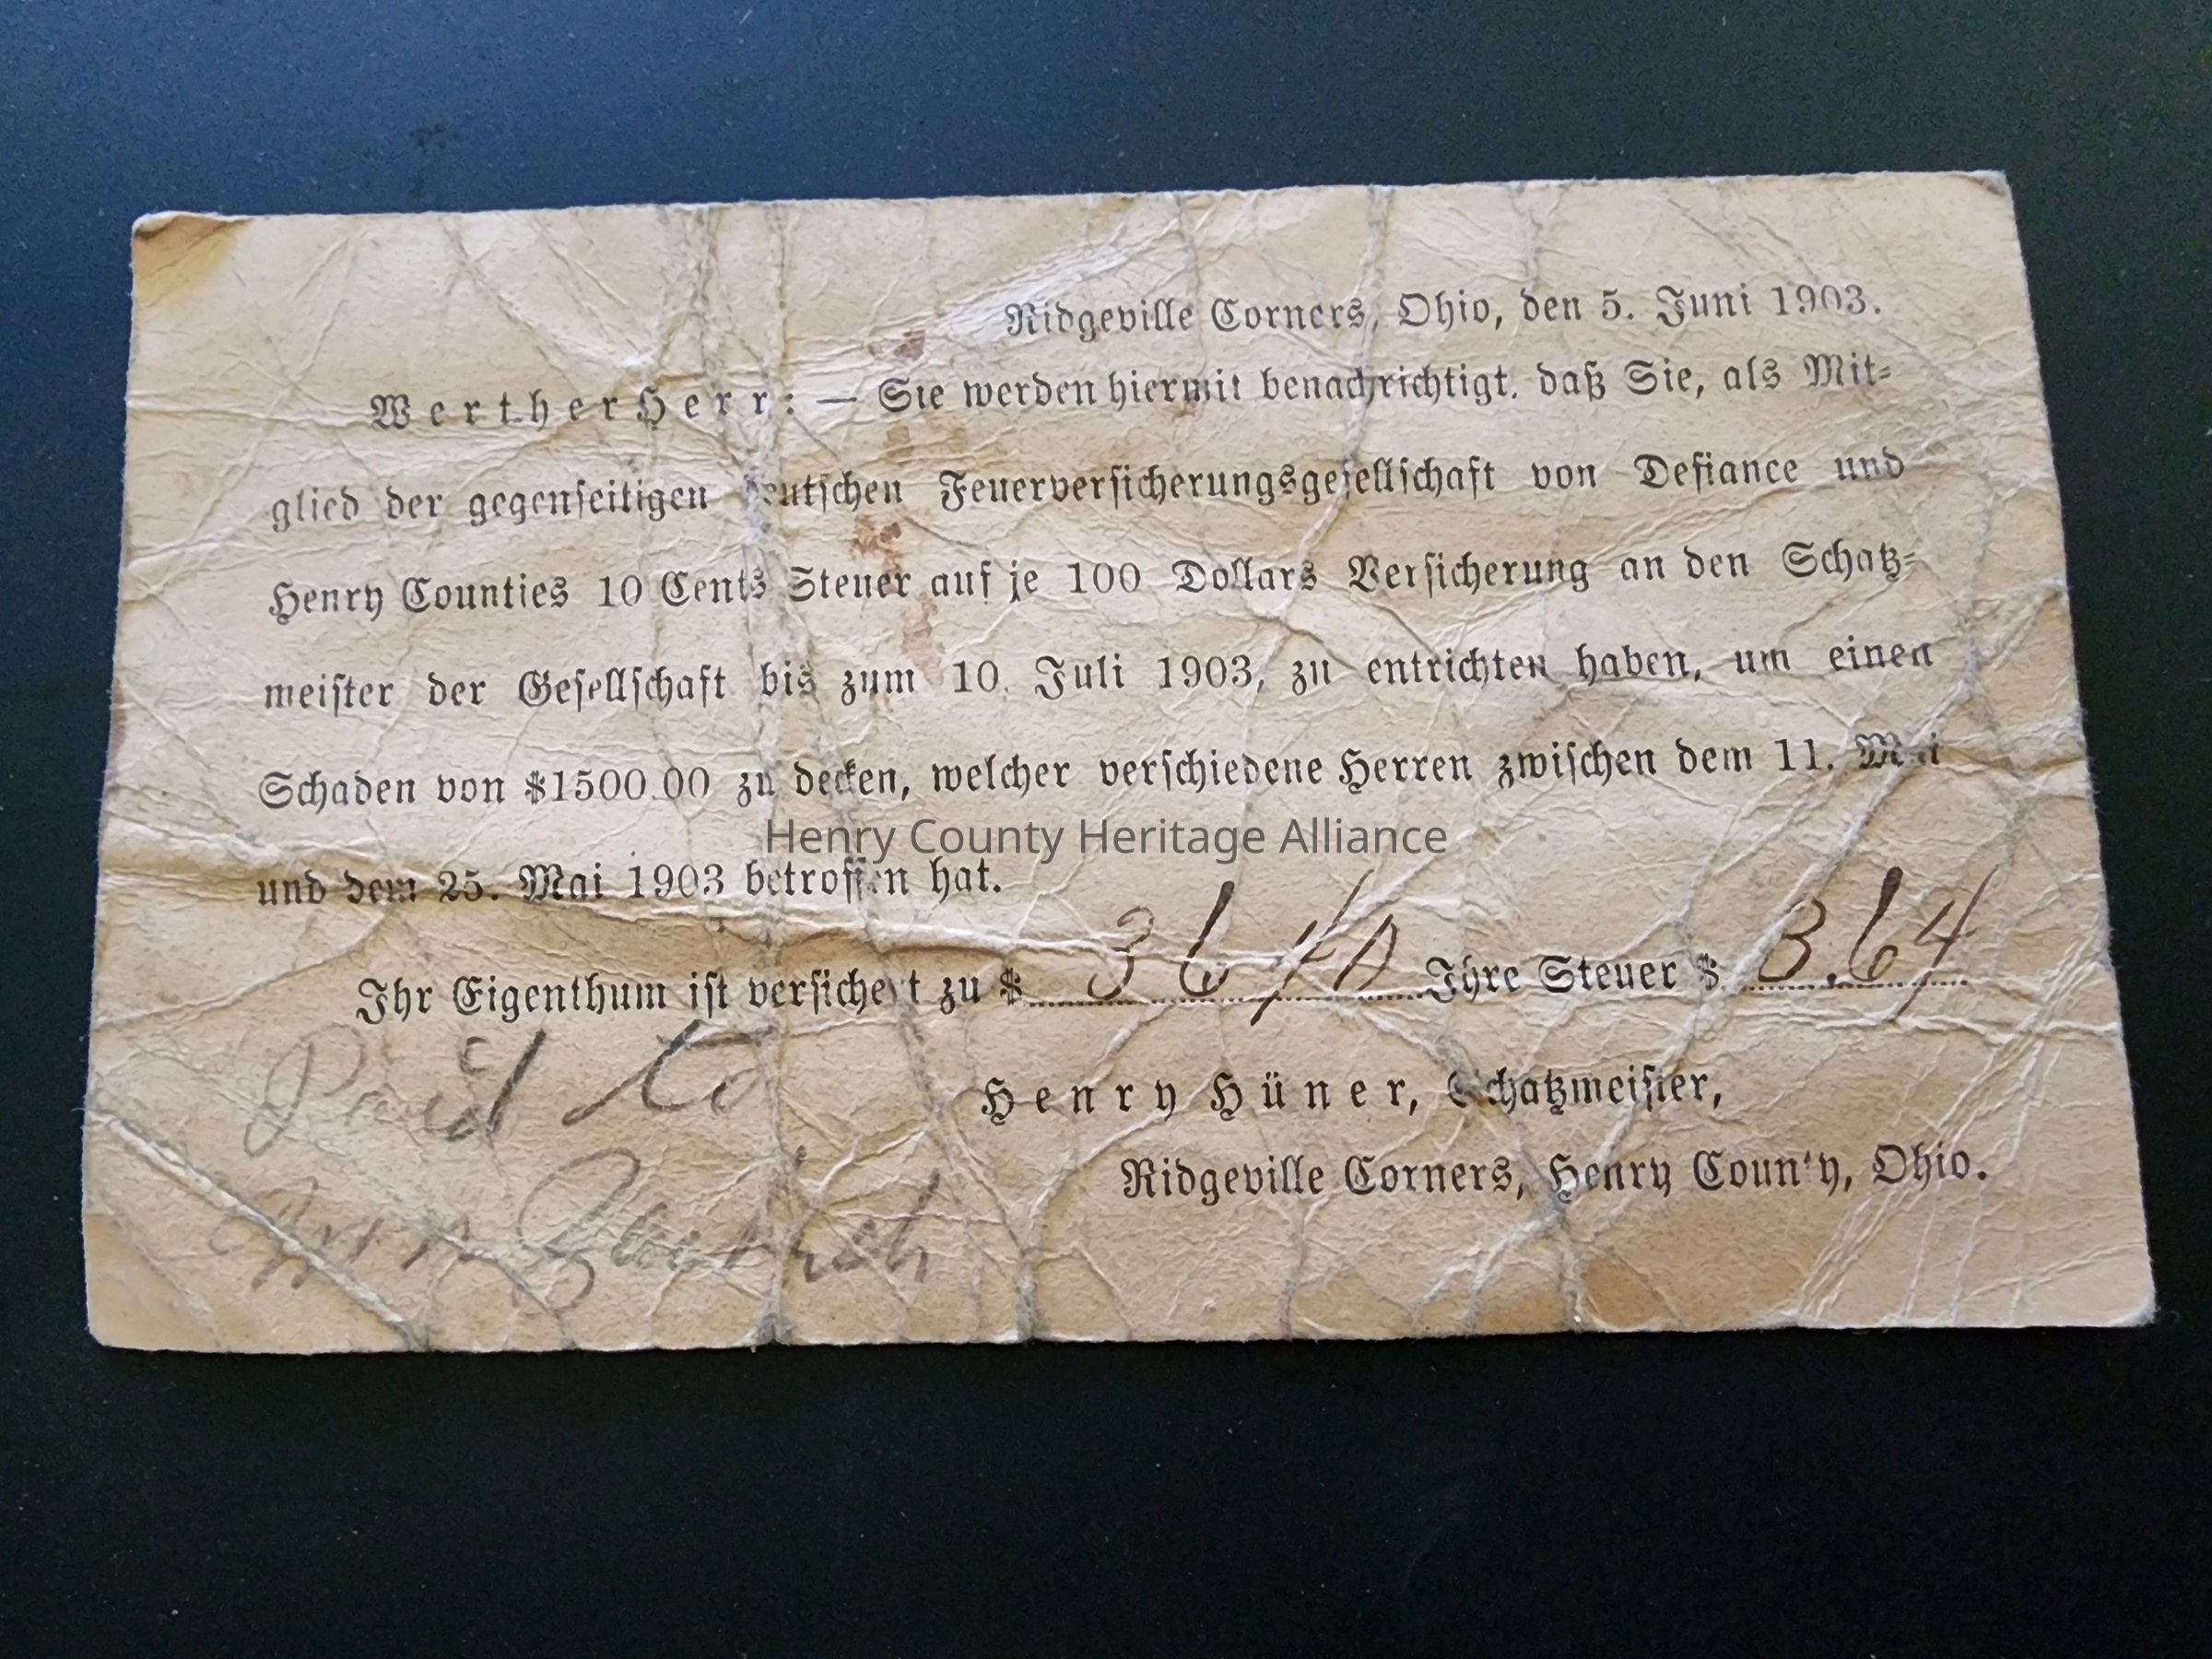 Ridgeville Corners, Ohio, den 5. Juni 1903.
Werther Herr: — Sie werden hiermit benachrichtigt, daß Sie, als Mit-
glied der gegenseitigen deutschen Feuerversicherungsgesellschaft von Defiance und
Henry Counties 10 Cents Steuer auf je 100 Dollars Versicherung an den Schatz-
meister der Gesellschaft bis zum 10. Juli 1903, zu entrichten haben, um einen
Schaden von $1500.00 zu decken, welcher verschiedene Herren zwischen dem 11. Mai
Henry County Heritage Alliance
und dem 25. Mai 1903 betroffen hat.
Ihr Eigenthum ist versichert zu $ 3640 Ihre Steuer $ 3.64
Paid to
Henry Hüner, Schatzmeister,
Ridgeville Corners, Henry County, Ohio.